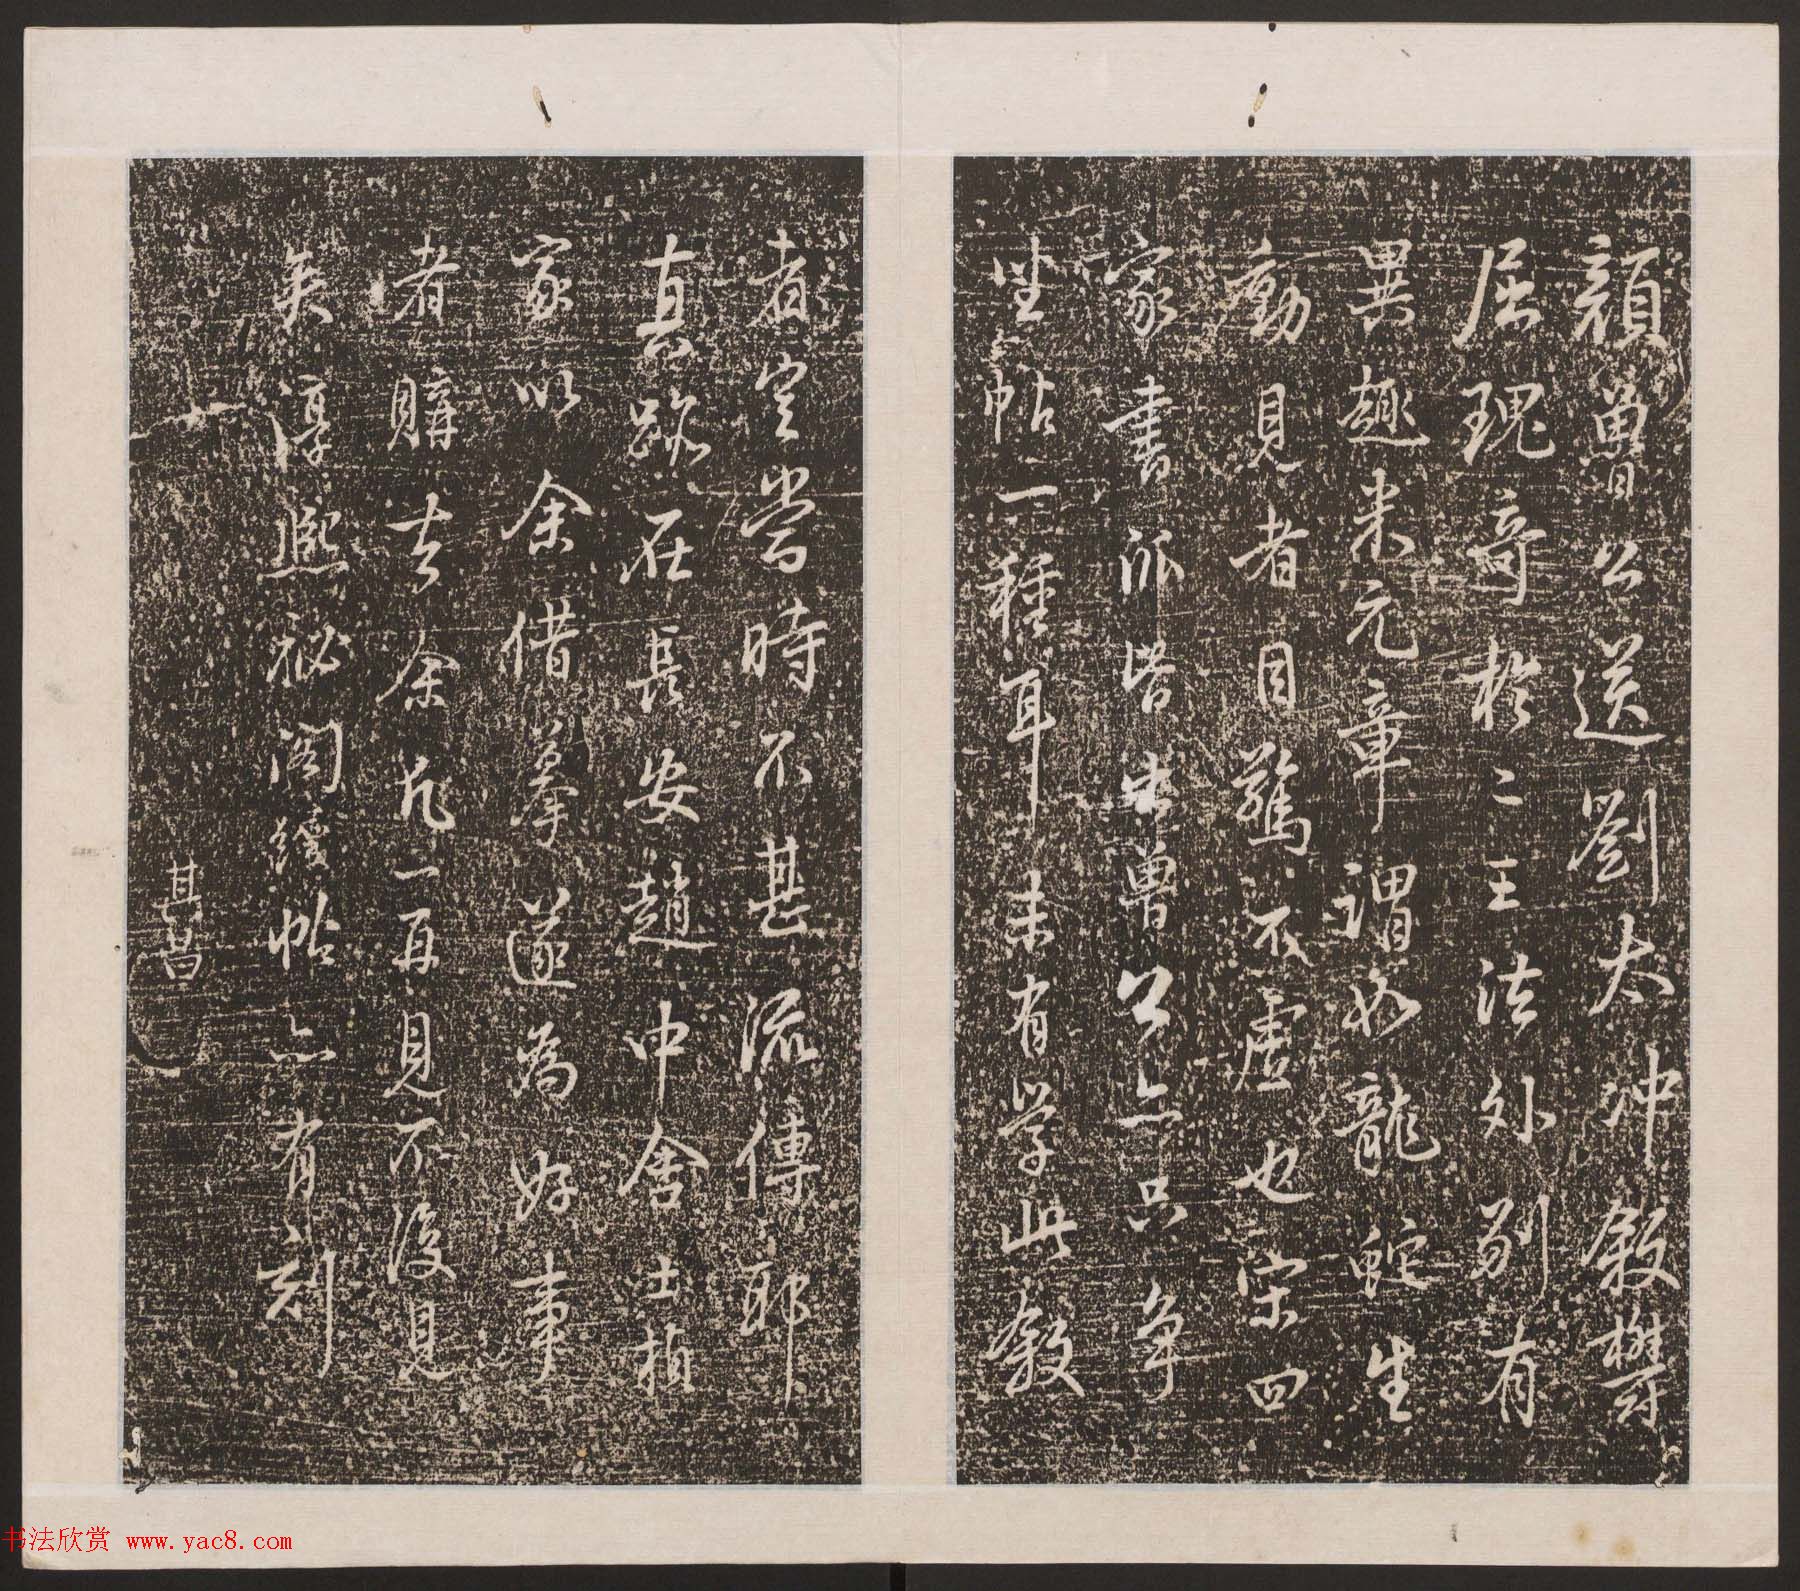 顏魯公送劉太冲叙欝
屈瑰奇於二王法外別有
異趣米元章謂如龍蛇生
動見者目驚不虛也宋四
家書派皆出魯公亦只争
坐帖一種耳未有學此叙
者豈當時不甚流傳耶
真跡在長安趙中舍士楨
家以余借摹遂為好事
者購去余凡一再見不復見
矣淳熙祕閣續帖亦有刻
其昌
书法欣赏 www.yac8.com